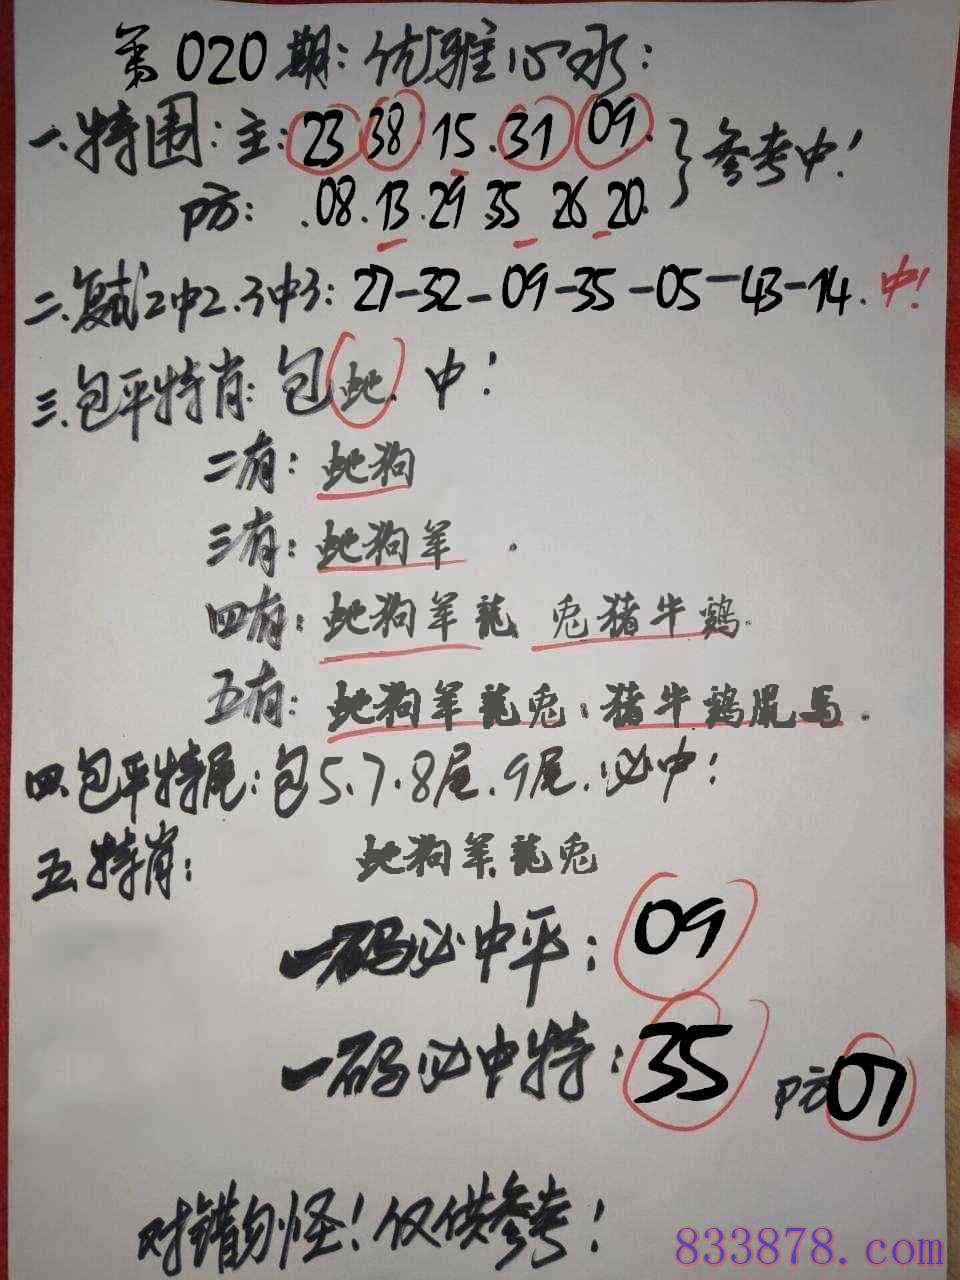 第020期：优雅心水：
一.特围：主：23 38.15.31 09.}参考中！
防：.08.13.29 35 26 20.
二.复试2中2.3中3：27-32-09-35-05-43-14.中！
三.包平特肖：包蛇.中！
二有：蛇狗
三有：蛇狗羊.
四有：蛇狗羊龍 兎猪牛鷄.
五有：蛇狗羊龍兎：猪牛鷄鼠馬.
四.包平特尾：包5.7.8尾.9尾.必中！
五.特肖：蛇狗羊.龍兎
一码必中平：09
一码必中特：35 防07
对错勿怪！仅供参考！
833878.com